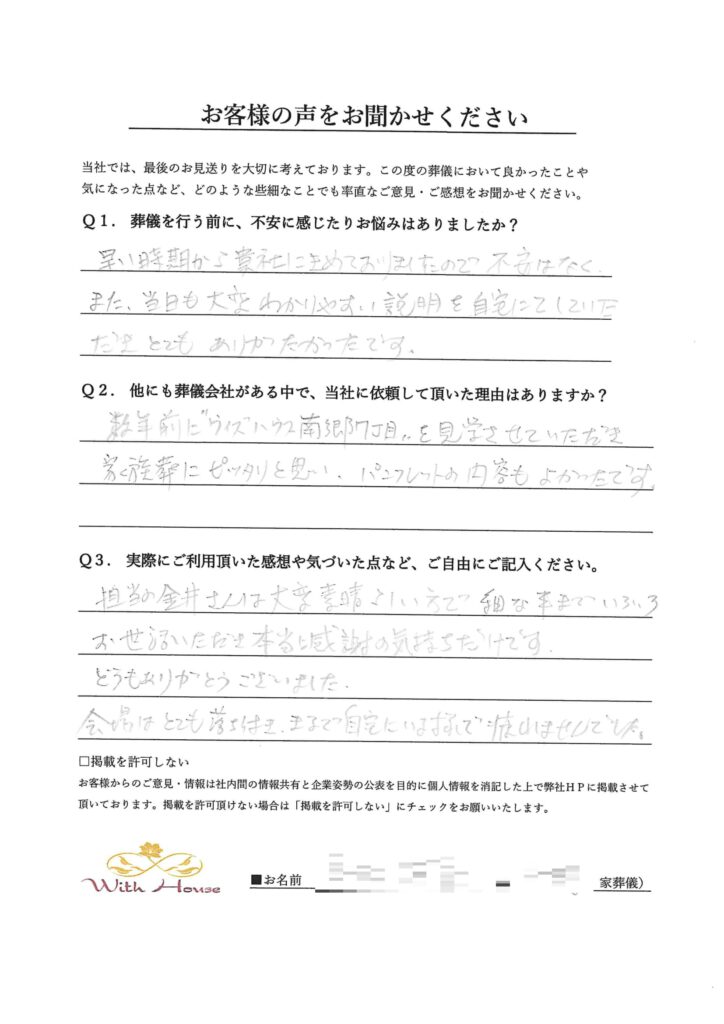 お客様の声をお聞かせください
当社では、最後のお見送りを大切に考えております。この度の葬儀において良かったことや
気になった点など、どのような些細なことでも率直なご意見・ご感想をお聞かせください。
Q1. 葬儀を行う前に、不安に感じたりお悩みはありましたか？
早い時期から貴社にきめておりましたので不安はなく、
また、当日も大変わかりやすい説明を自宅にてしていた
だきとてもありがたかったです。
Q2. 他にも葬儀会社がある中で、当社に依頼して頂いた理由はありますか？
数年前に“ウィズハウス南郷7丁目〟を見学させていただき
家族葬にピッタリと思い、パンフレットの内容もよかったです。
Q3. 実際にご利用頂いた感想や気づいた点など、ご自由にご記入ください。
担当の金井さんは大変素晴らしい方で細な事までいろいろ
お世話いただき本当に感謝の気持ちだけです。
どうもありがとうございました。
会場はとても落ち付き、まるで自宅にいる様で疲れませんでした。
□掲載を許可しない
お客様からのご意見・情報は社内間の情報共有と企業姿勢の公表を目的に個人情報を消記した上で弊社HPに掲載させて
頂いております。掲載を許可頂けない場合は「掲載を許可しない」にチェックをお願いいたします。
With House
■お名前 家葬儀）